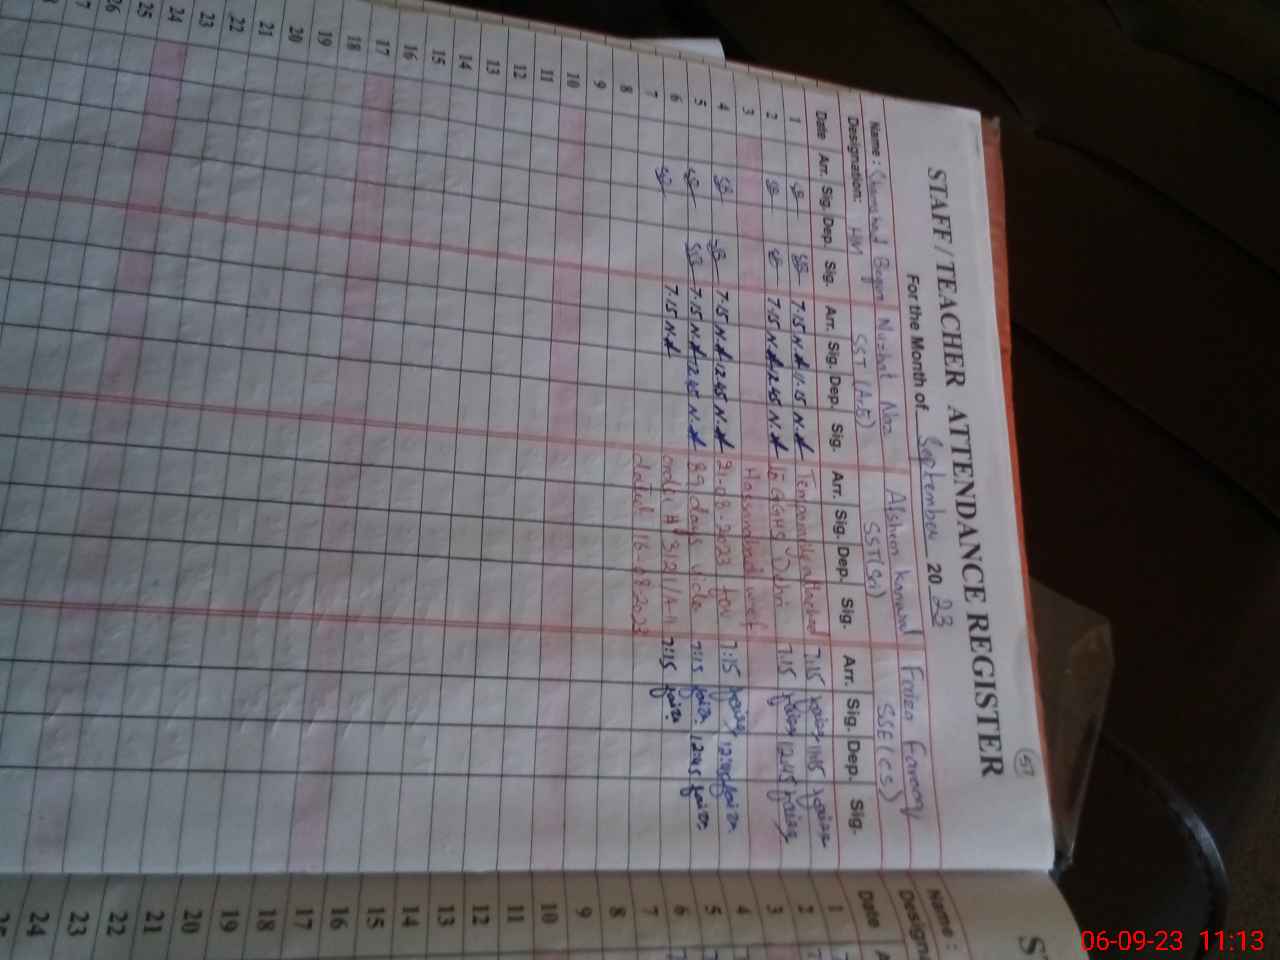 57
STAFF/TEACHER ATTENDANCE REGISTER
For the Month of September 2023
Name: Begum Nuzhat Naz Afsheen Kanwal Faiza Farooq
Designation: HM SST (Art) SST(Sci) SSE(CS)
Date Arr. Sig. Dep. Sig. Arr. Sig. Dep. Sig. Arr. Sig. Dep. Sig. Arr. Sig. Dep. Sig.
1 SB SB 7.15 N.A 11.15 N.A Temporarily attached 7.15 faiza 11:15 faiza
2 SB SB 7.15 N.A 12.45 N.A to GGHS 7.15 faiza 12.45 faiza
3
4 SB SB 7.15 N.A 12.45 N.A 31-08-2023 for 7:15 faiza 12:45 faiza
5 SB SB 7.15 N.A 12.45 N.A 89 days vide 7:15 faiza 12:45 faiza
6 SB 7.15 N.A order # 3121/A-II 7:15 faiza
7 dated 16-08-2023
8
9
10
11
12
13
14
15
16
17
18
19
20
21
22
23
24
25
26
ST
Name:
Design
Date
1
2
3
4
5
6
7
8
9
10
11
12
13
14
15
16
17
18
19
20
21
22
23
24
06-09-23 11:13